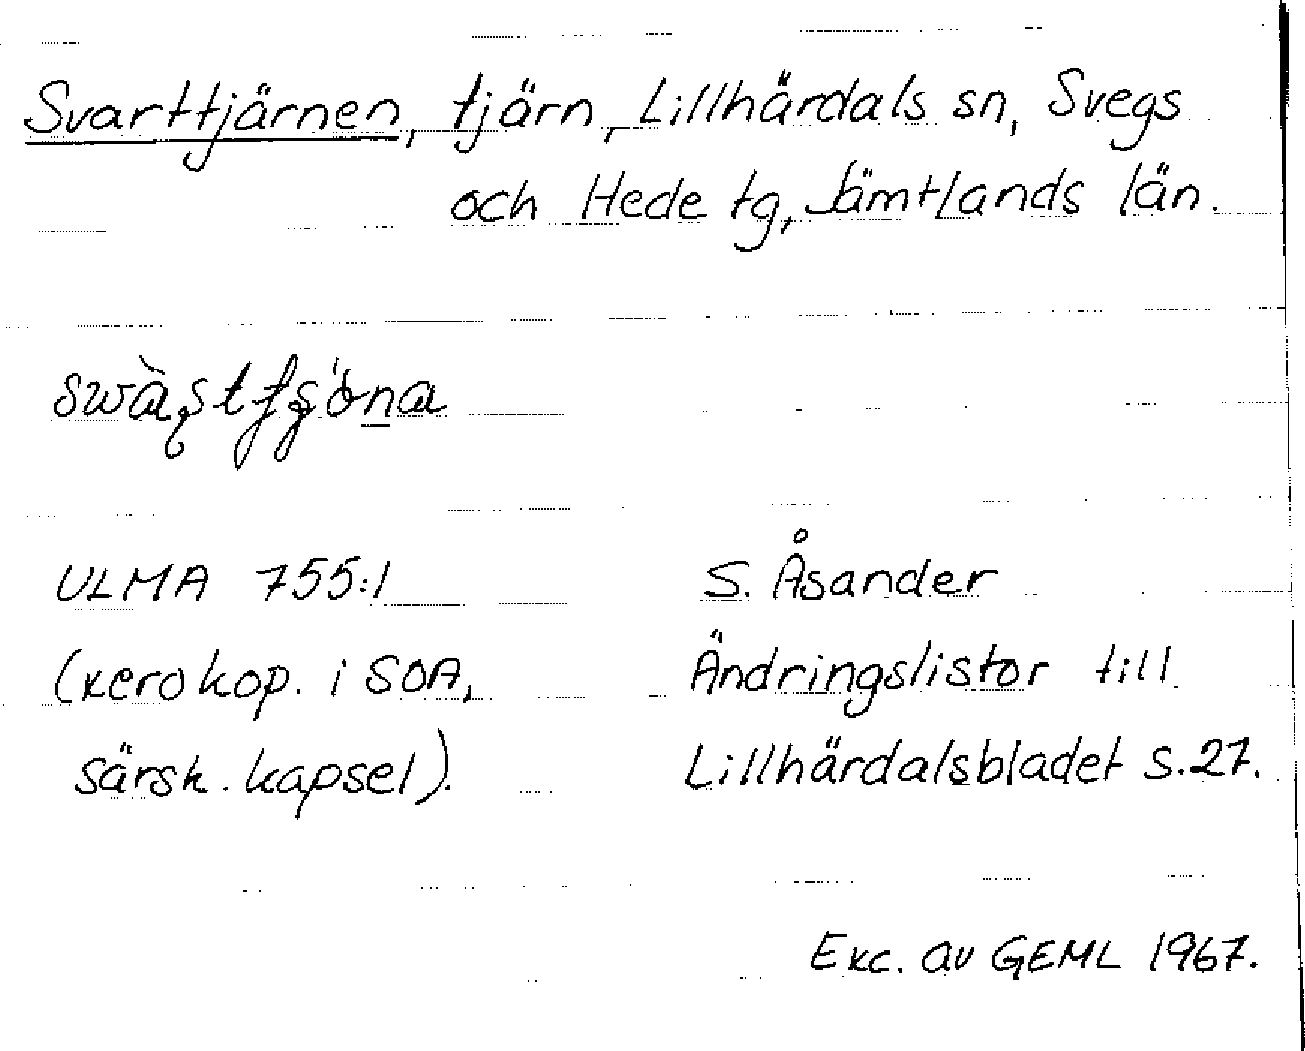 Svarttjärnen, tjärn, Lillhärdals sn, Svegs
och Hede tg, Jämtlands län.
ULMA 755:1
(xerokop. i SOA,
särsk. kapsel).
S. Åsander
Ändringslistor till
Lillhärdalsbladet s. 27.
Exc. av GEML 1967.